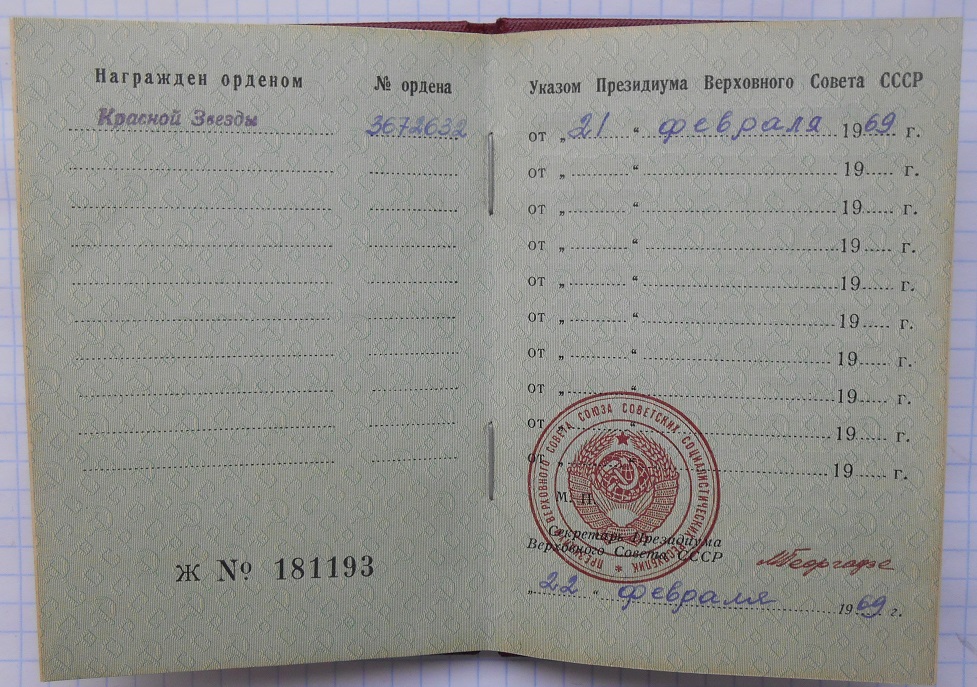 Награжден орденом № ордена
Красной Звезды 3672632
ж № 181193
Указом Президиума Верховного Совета СССР
от „21“ февраля 1969 г.
от „ “ 19 г.
от „ “ 19 г.
от „ “ 19 г.
от „ “ 19 г.
от „ “ 19 г.
от „ “ 19 г.
от „ “ 19 г.
от „ “ 19 г.
от „ “ 19 г.
М. П.
ПРЕЗИДИУМ ВЕРХОВНОГО СОВЕТА СОЮЗА СОВЕТСКИХ СОЦИАЛИСТИЧЕСКИХ РЕСПУБЛИК
Секретарь Президиума
Верховного Совета СССР МГеоргадзе
„22“ февраля 1969 г.